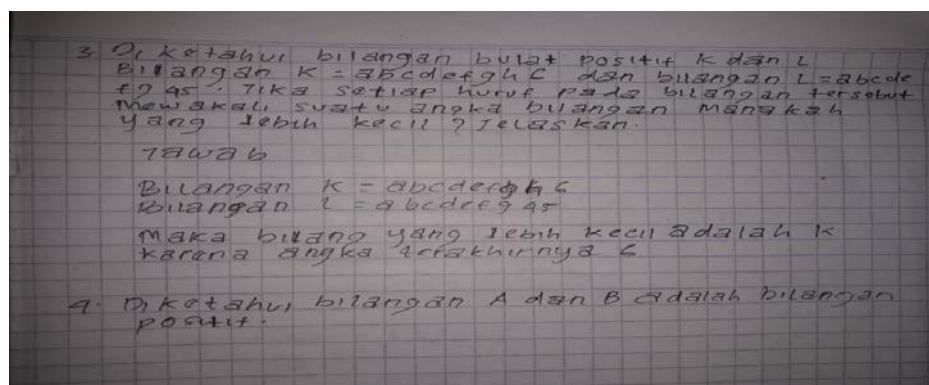 3. Diketahui bilangan bulat positif K dan L
Bilangan K = abcdefgh6 dan bilangan L = abcde
fg45. Jika setiap huruf pada bilangan tersebut
mewakali suatu angka bilangan manakah
yang lebih kecil ? Jelaskan.
Jawab
Bilangan K = abcdefgh6
Bilangan L = abcdefg45
Maka bilang yang lebih kecil adalah K
karena angka terakhirnya 6
4. Diketahui bilangan A dan B adalah bilangan
positif.